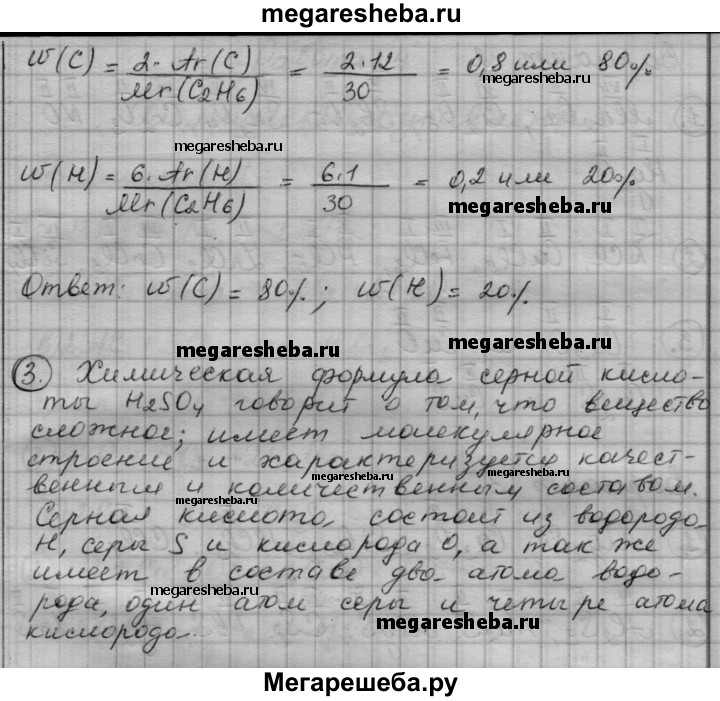 megaresheba.ru
w(C) = 2·Ar(C) / Mr(C₂H₆) = 2·12 / 30 = 0,8 или 80%
megaresheba.ru
megaresheba.ru
w(H) = 6·Ar(H) / Mr(C₂H₆) = 6·1 / 30 = 0,2 или 20%
megaresheba.ru
megaresheba.ru
Ответ: w(C) = 80%; w(H) = 20%.
megaresheba.ru
megaresheba.ru
3. Химическая формула серной кисло-
ты H₂SO₄ говорит о том, что вещество
megaresheba.ru
сложное; имеет молекулярное
строение и характеризуется качест-
megaresheba.ru
венным и количественным составом.
megaresheba.ru
Серная кислота состоит из водорода
H, серы S и кислорода O, а так же
имеет в составе два атома водо-
megaresheba.ru
рода, один атом серы и четыре атома
megaresheba.ru
кислорода.
Мегарешеба.ру